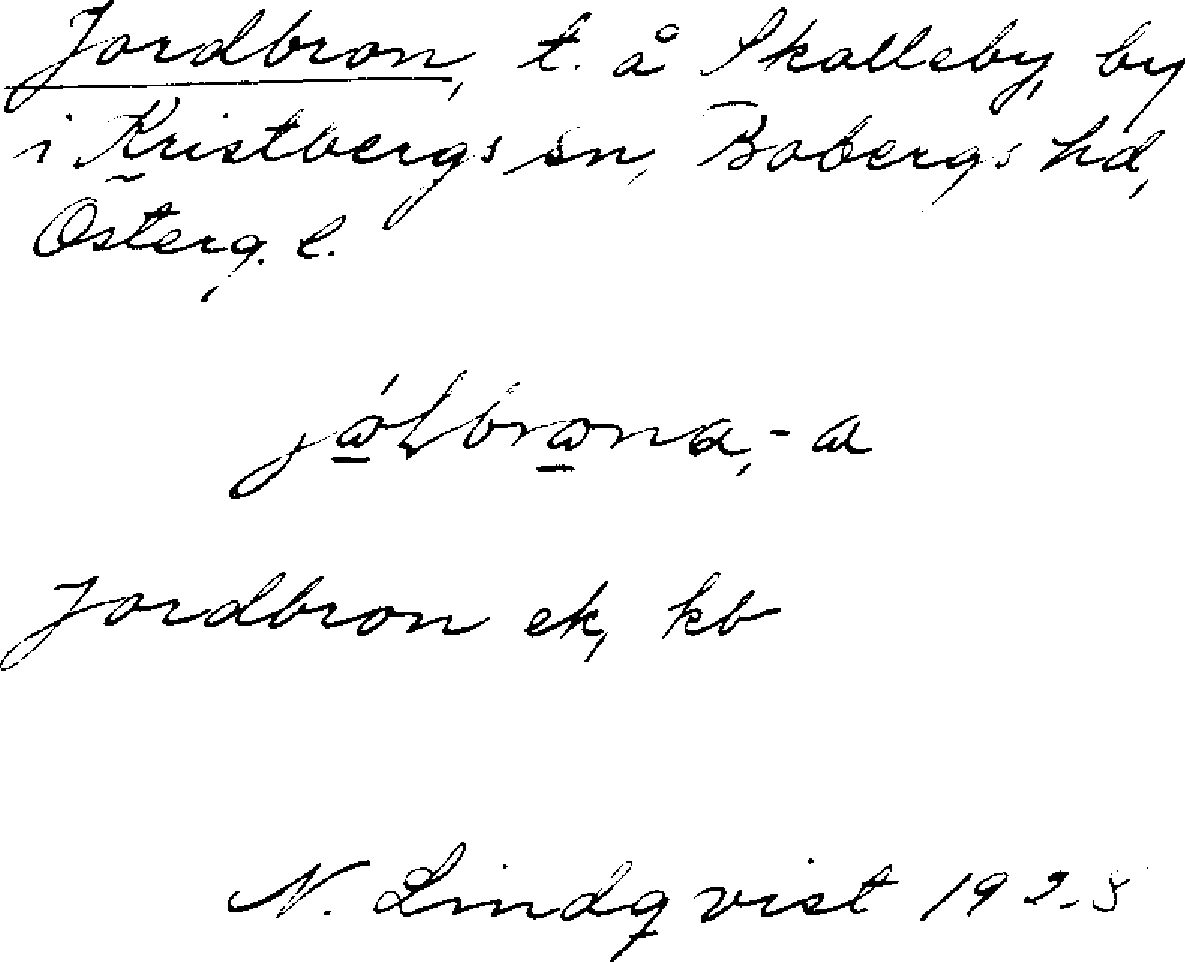 Jordbron, t. å Skalleby, by
i Kristbergs sn, Bobergs hd,
Österg. l.
Jordbron ek, kb
N. Lindqvist 1925